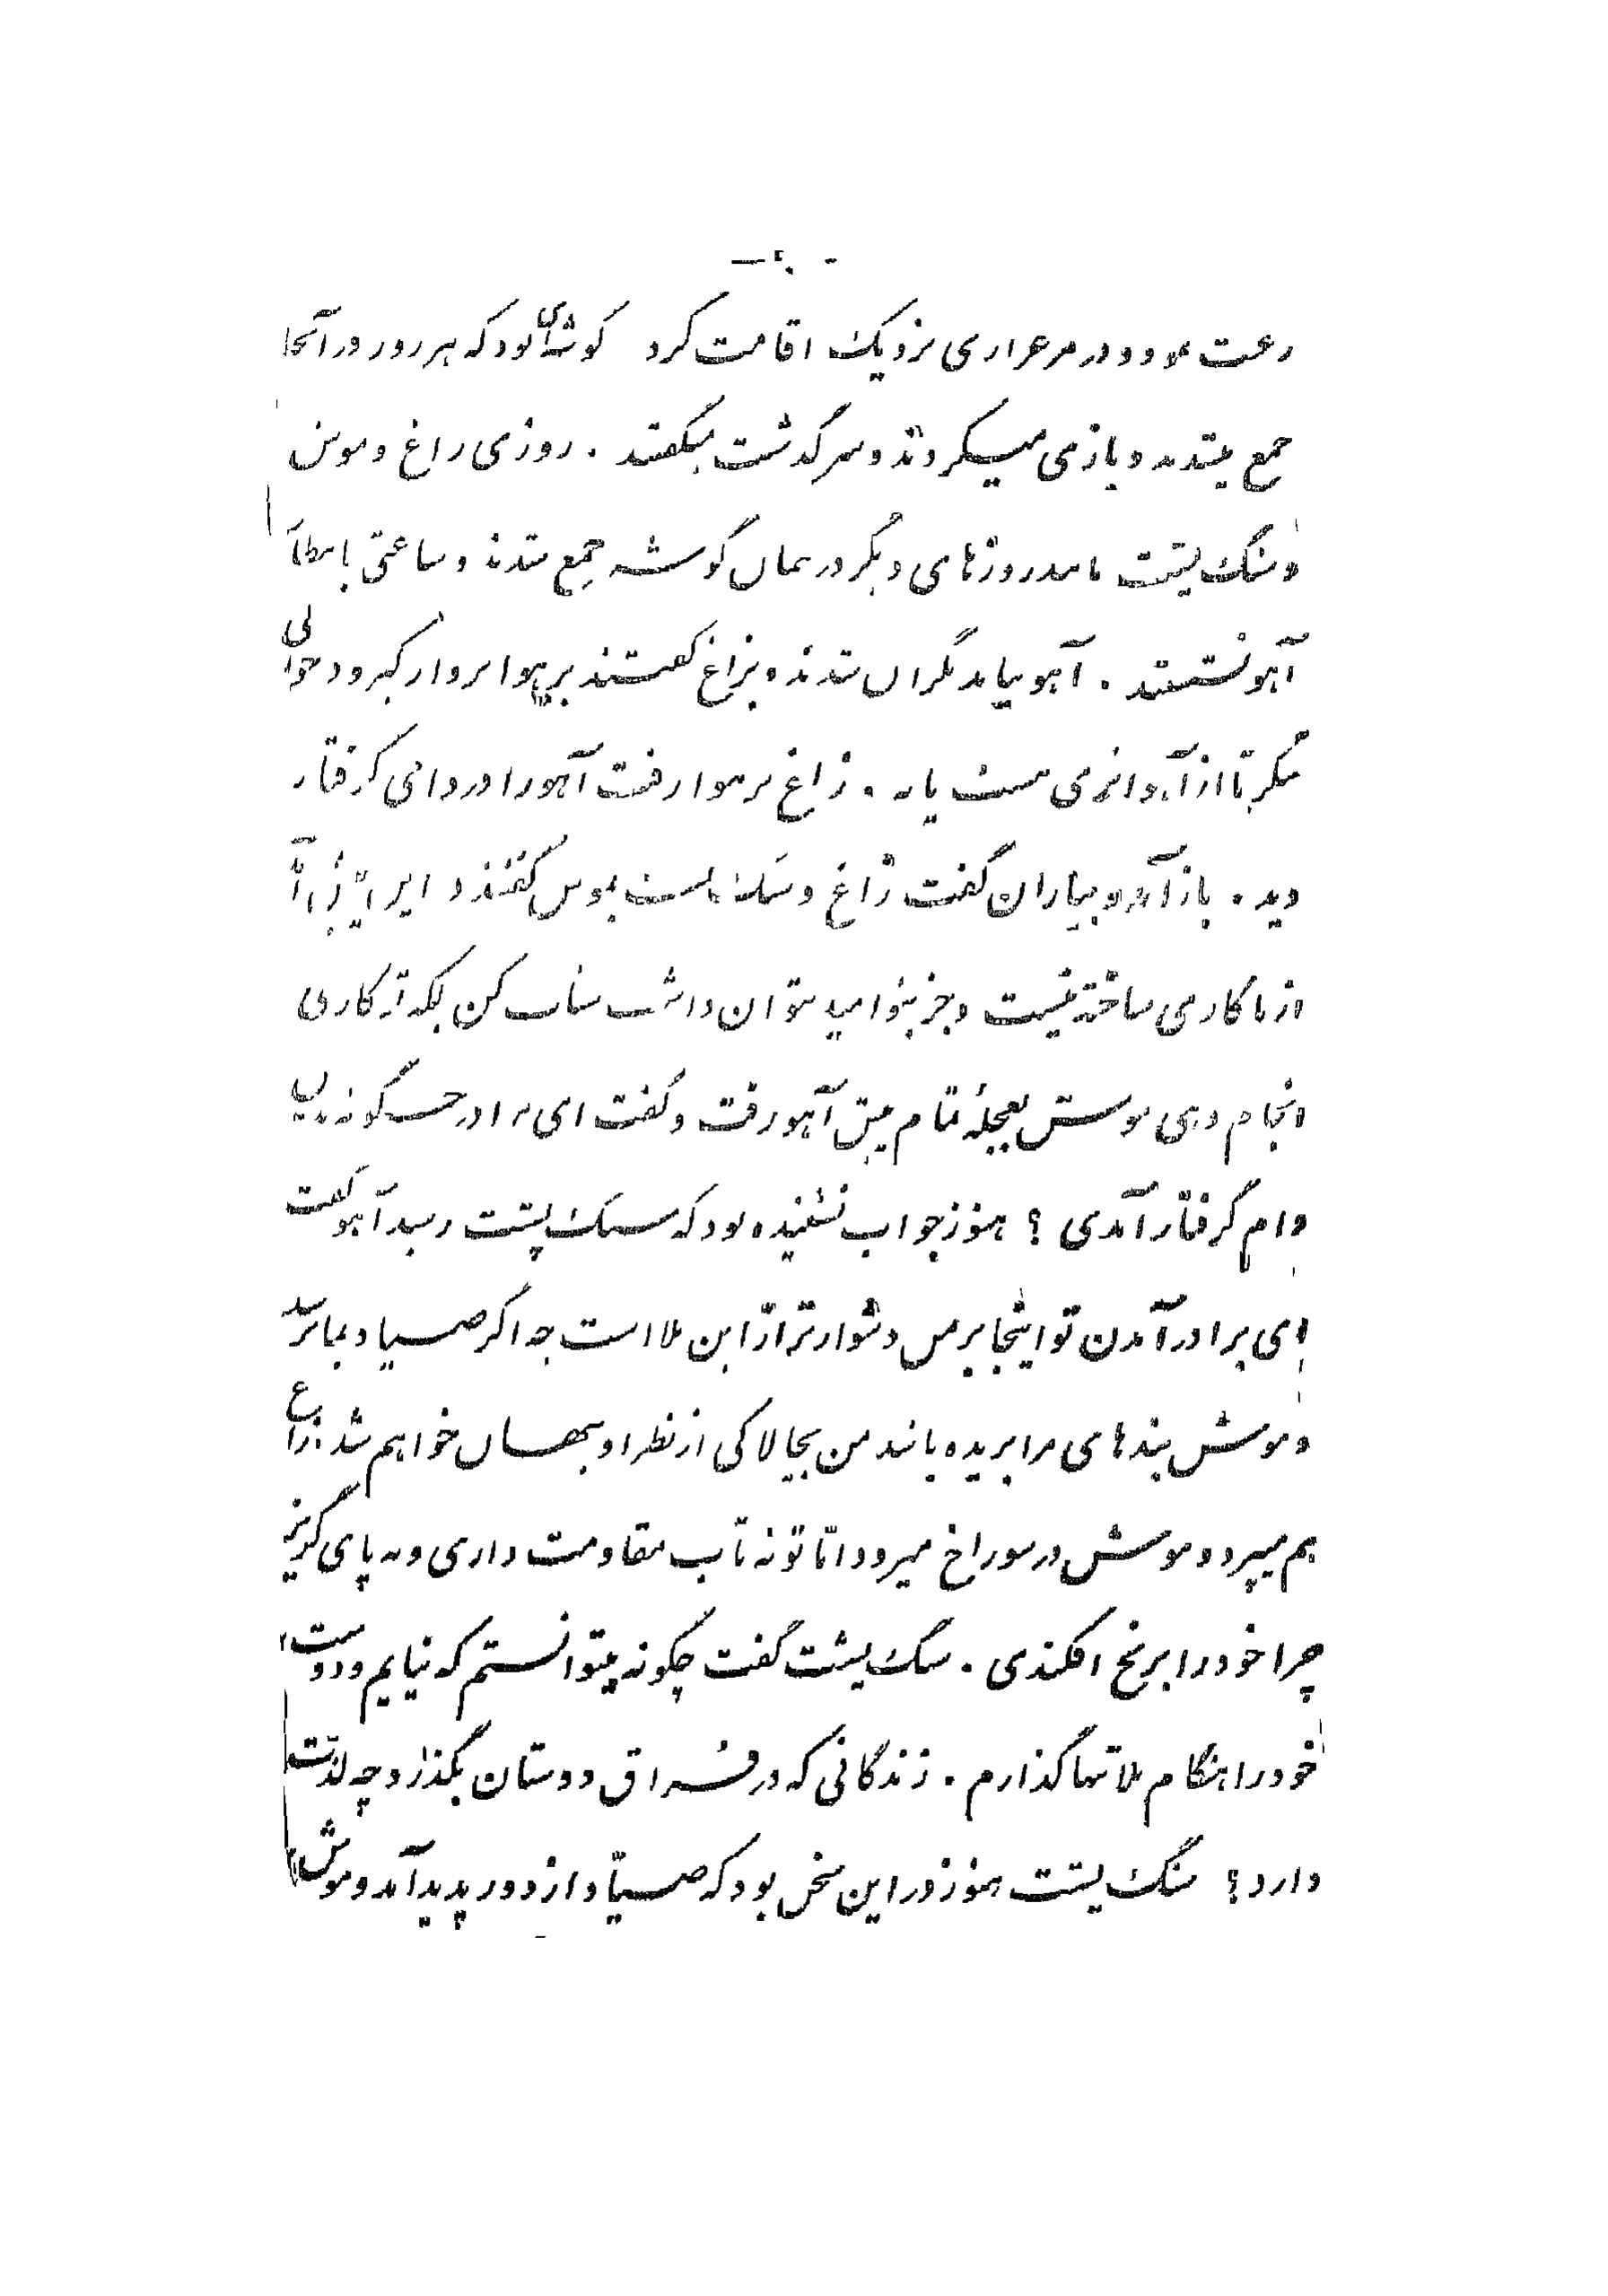 رغبت نمود و در مرغزاری نزدیک اقامت کرد گوشه‌ای بود که هر روز در آنجا
جمع میشدند و بازی میکردند و سرگذشت میگفتند . روزی زاغ و موش
و سنگ پشت مانند روزهای دیگر در همان گوشه جمع شدند و ساعتی بانتظار
آهو نشستند . آهو نیامد نگران شدند و بزاغ گفتند بر هوا پرواز گیر و در حوالی
بنگر تا از آهو اثری هست یا نه . زاغ بر هوا رفت آهو را در دامی گرفتار
دید . باز آمد و بیاران گفت زاغ و سنگ پشت بموش گفتند در این
از ما کاری ساخته نیست و جز بتو امید نتوان داشت شتاب کن بلکه تو کاری
انجام دهی موش بعجلهٔ تمام پیش آهو رفت و گفت ای برادر چگونه
دام گرفتار آمدی ؟ هنوز جواب نشنیده بود که سنگ پشت رسید آهو گفت
ای برادر آمدن تو اینجا بر من دشوارتر از این بلا است چه اگر صیاد بما برسد
و موش بندهای مرا بریده باشد من بچالاکی از نظر او پنهان خواهم شد زاغ
هم میپرد و موش در سوراخ میرود امّا تو نه تاب مقاومت داری و نه پای گریز
چرا خود را برنج افکندی . سنگ پشت گفت چگونه میتوانستم که نیایم و دوست
خود را هنگام بلا تنها گذارم . زندگانی که در فراق دوستان بگذرد چه لذّت
دارد ؟ سنگ پشت هنوز در این سخن بود که صیّاد از دور پدید آمد و موش